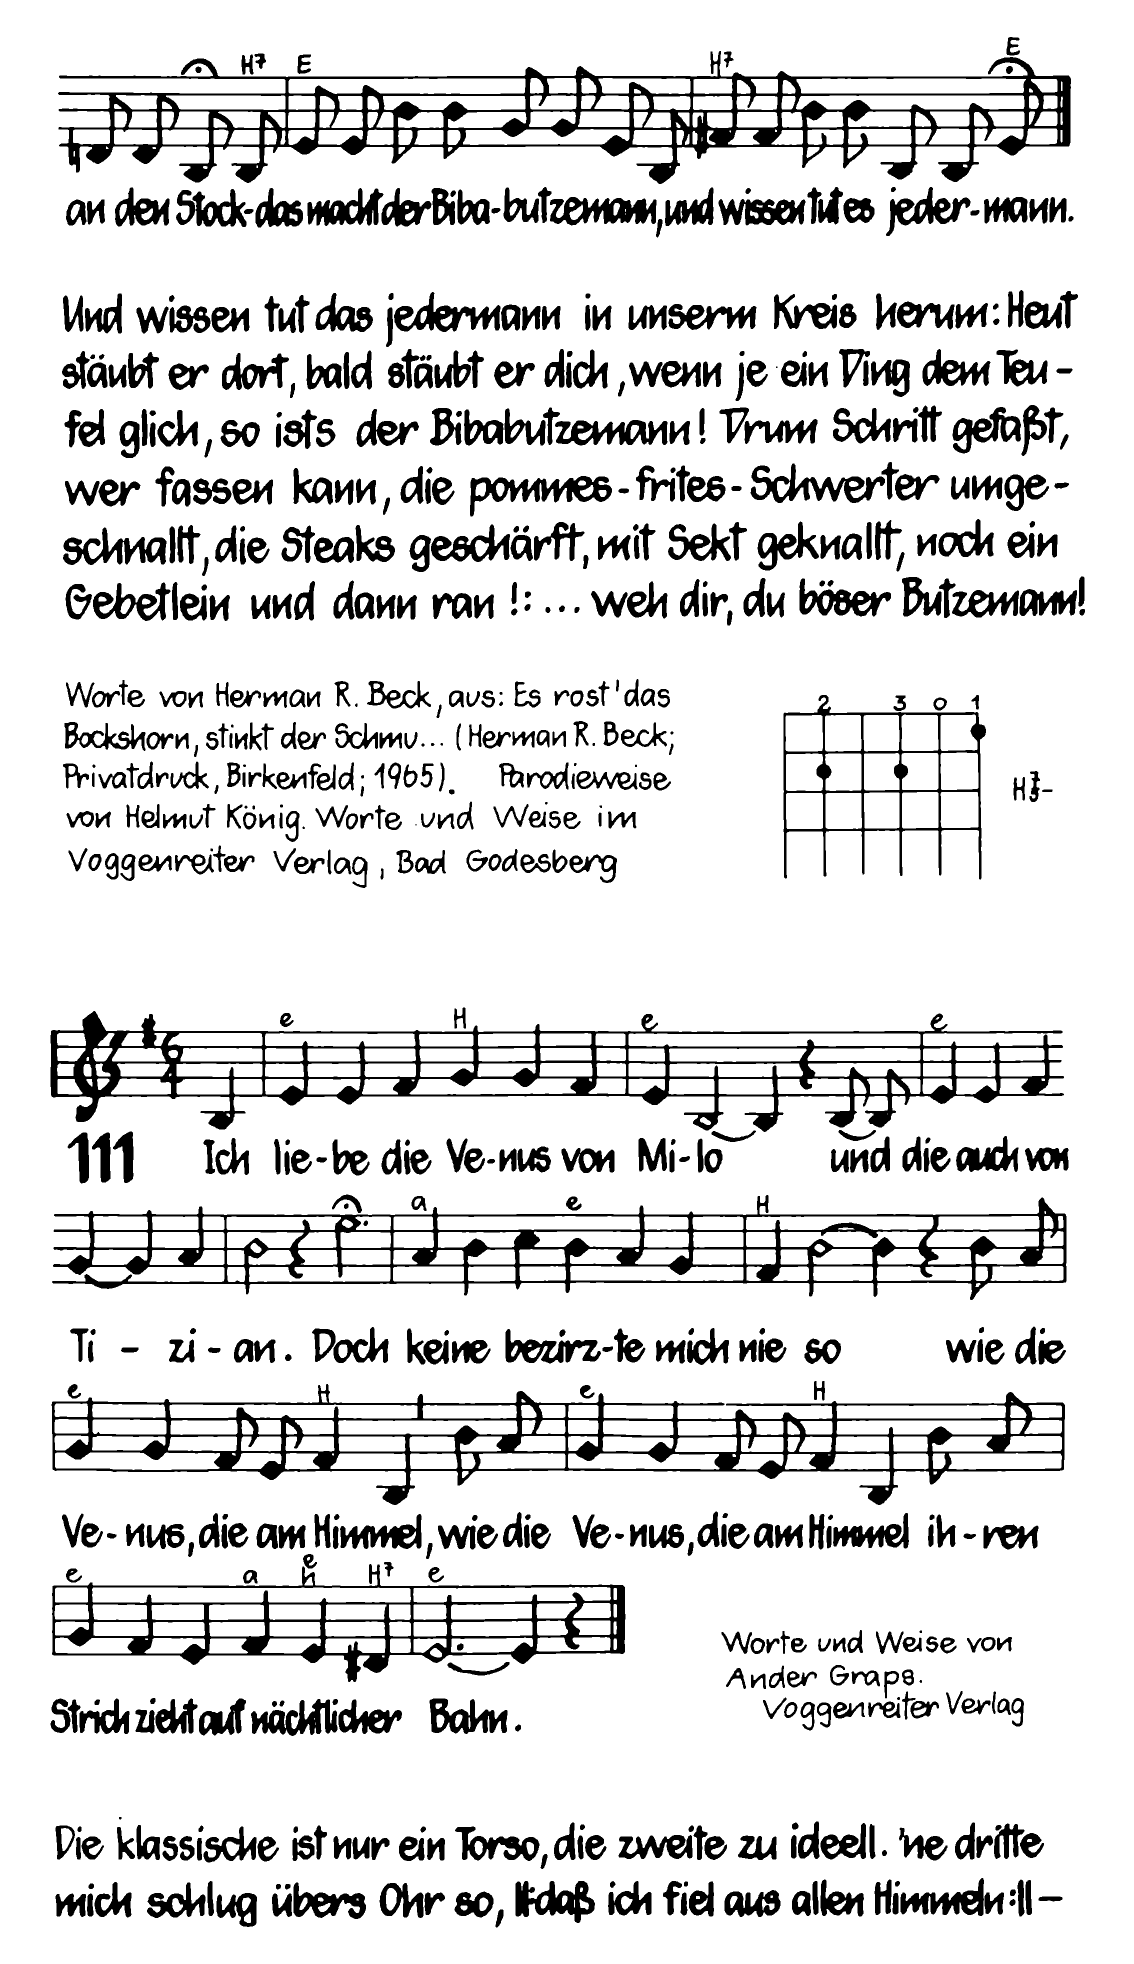 H7 E H7 E
an den Stock-das macht der Biba-butzemann, und wissen tut es jeder-mann.
Und wissen tut das jedermann in unserm Kreis herum: Heut
stäubt er dort, bald stäubt er dich, wenn je ein Ding dem Teu-
fel glich, so ists der Bibabutzemann! Drum Schritt gefaßt,
wer fassen kann, die pommes-frites-Schwerter umge-
schnallt, die Steaks geschärft, mit Sekt geknallt, noch ein
Gebetlein und dann ran !: ... weh dir, du böser Butzemann!
Worte von Herman R. Beck, aus: Es rost' das
Bockshorn, stinkt der Schmu... (Herman R. Beck;
Privatdruck, Birkenfeld; 1965). Parodieweise
von Helmut König. Worte und Weise im
Voggenreiter Verlag, Bad Godesberg
2 3 0 1
H 7/5-
e H e e
6/4
111 Ich lie-be die Ve-nus von Mi-lo und die auch von
a e H
Ti - zi - an. Doch keine bezirz-te mich nie so wie die
e H e H
Ve-nus, die am Himmel, wie die Ve-nus, die am Himmel ih-ren
e a e h H7 e
Strich zieht auf nächtlicher Bahn.
Worte und Weise von
Ander Graps.
Voggenreiter Verlag
Die klassische ist nur ein Torso, die zweite zu ideell. 'ne dritte
mich schlug übers Ohr so, ll:daß ich fiel aus allen Himmeln:ll-